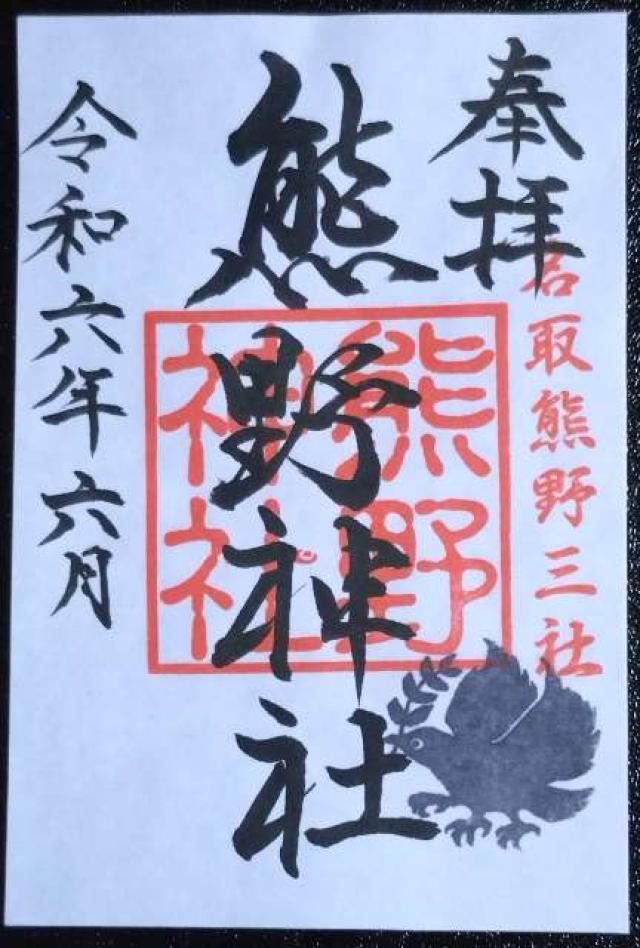 奉拝
名取熊野三社
熊野神社
熊野
神社
令和六年六月